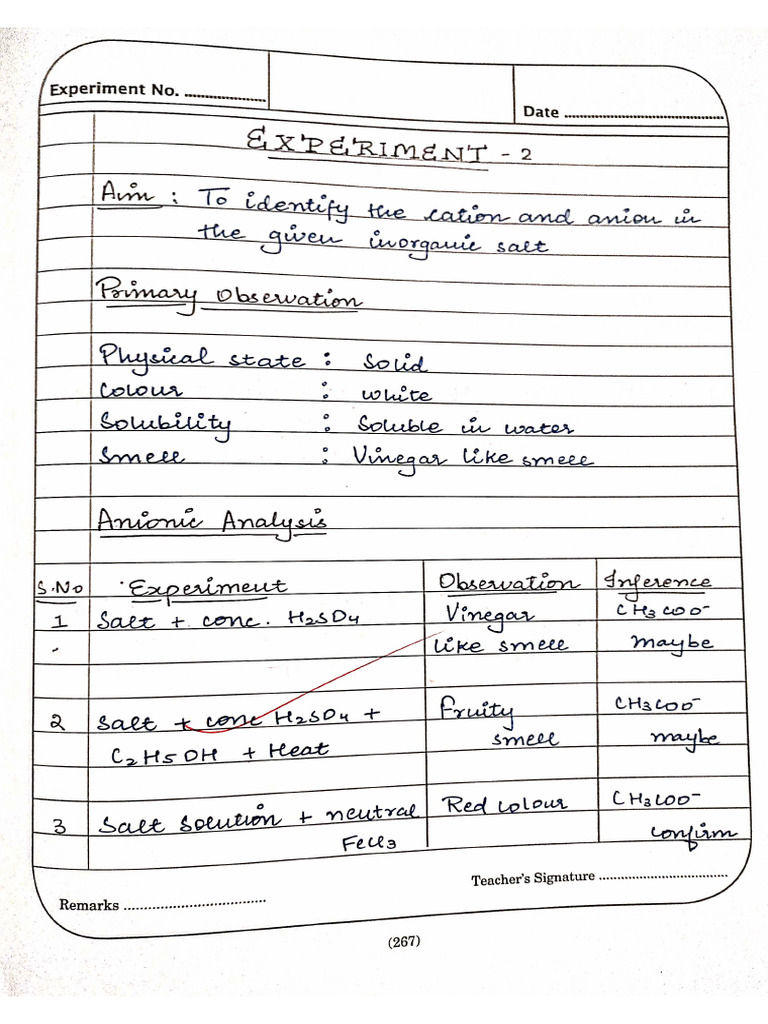 Experiment No. ....................
Date ........................................
EXPERIMENT - 2
Aim : To identify the cation and anion in
the given inorganic salt
Primary Observation
Physical state : Solid
Colour : White
Solubility : Soluble in water
Smell : Vinegar like smell
Anionic Analysis
S.No Experiment Observation Inference
1 Salt + conc. H2SO4 Vinegar CH3COO-
like smell maybe
2 Salt + conc H2SO4 + Fruity CH3COO-
C2H5OH + Heat smell maybe
3 Salt solution + neutral Red colour CH3COO-
FeCl3 confirm
Teacher's Signature ....................................
Remarks ....................................
(267)